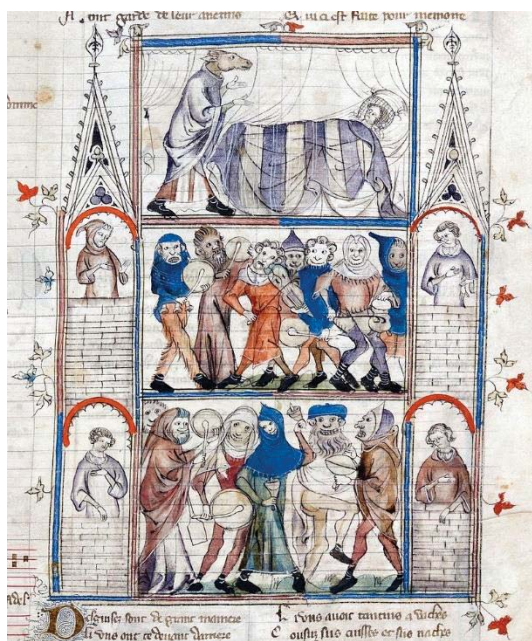 ont garde de leur anemis
ci est faite pour memoire
Desguisez sont de grant maniere
li vns ont ce deuant darriere
li vns auoit tantins a vaches
Cousuz sus cuisses et sus naches